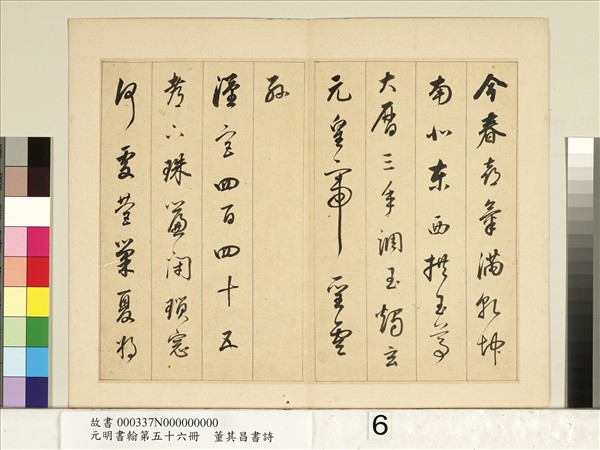 今春喜氣滿乾坤
南北東西拱至尊
大曆三年調玉燭玄
元皇帝聖雲
孫
漢宮四百四十五
多下珠簾閉瑣窓
何處營巢夏將
故書 000337N000000000
元明書翰第五十六冊 董其昌書詩
6